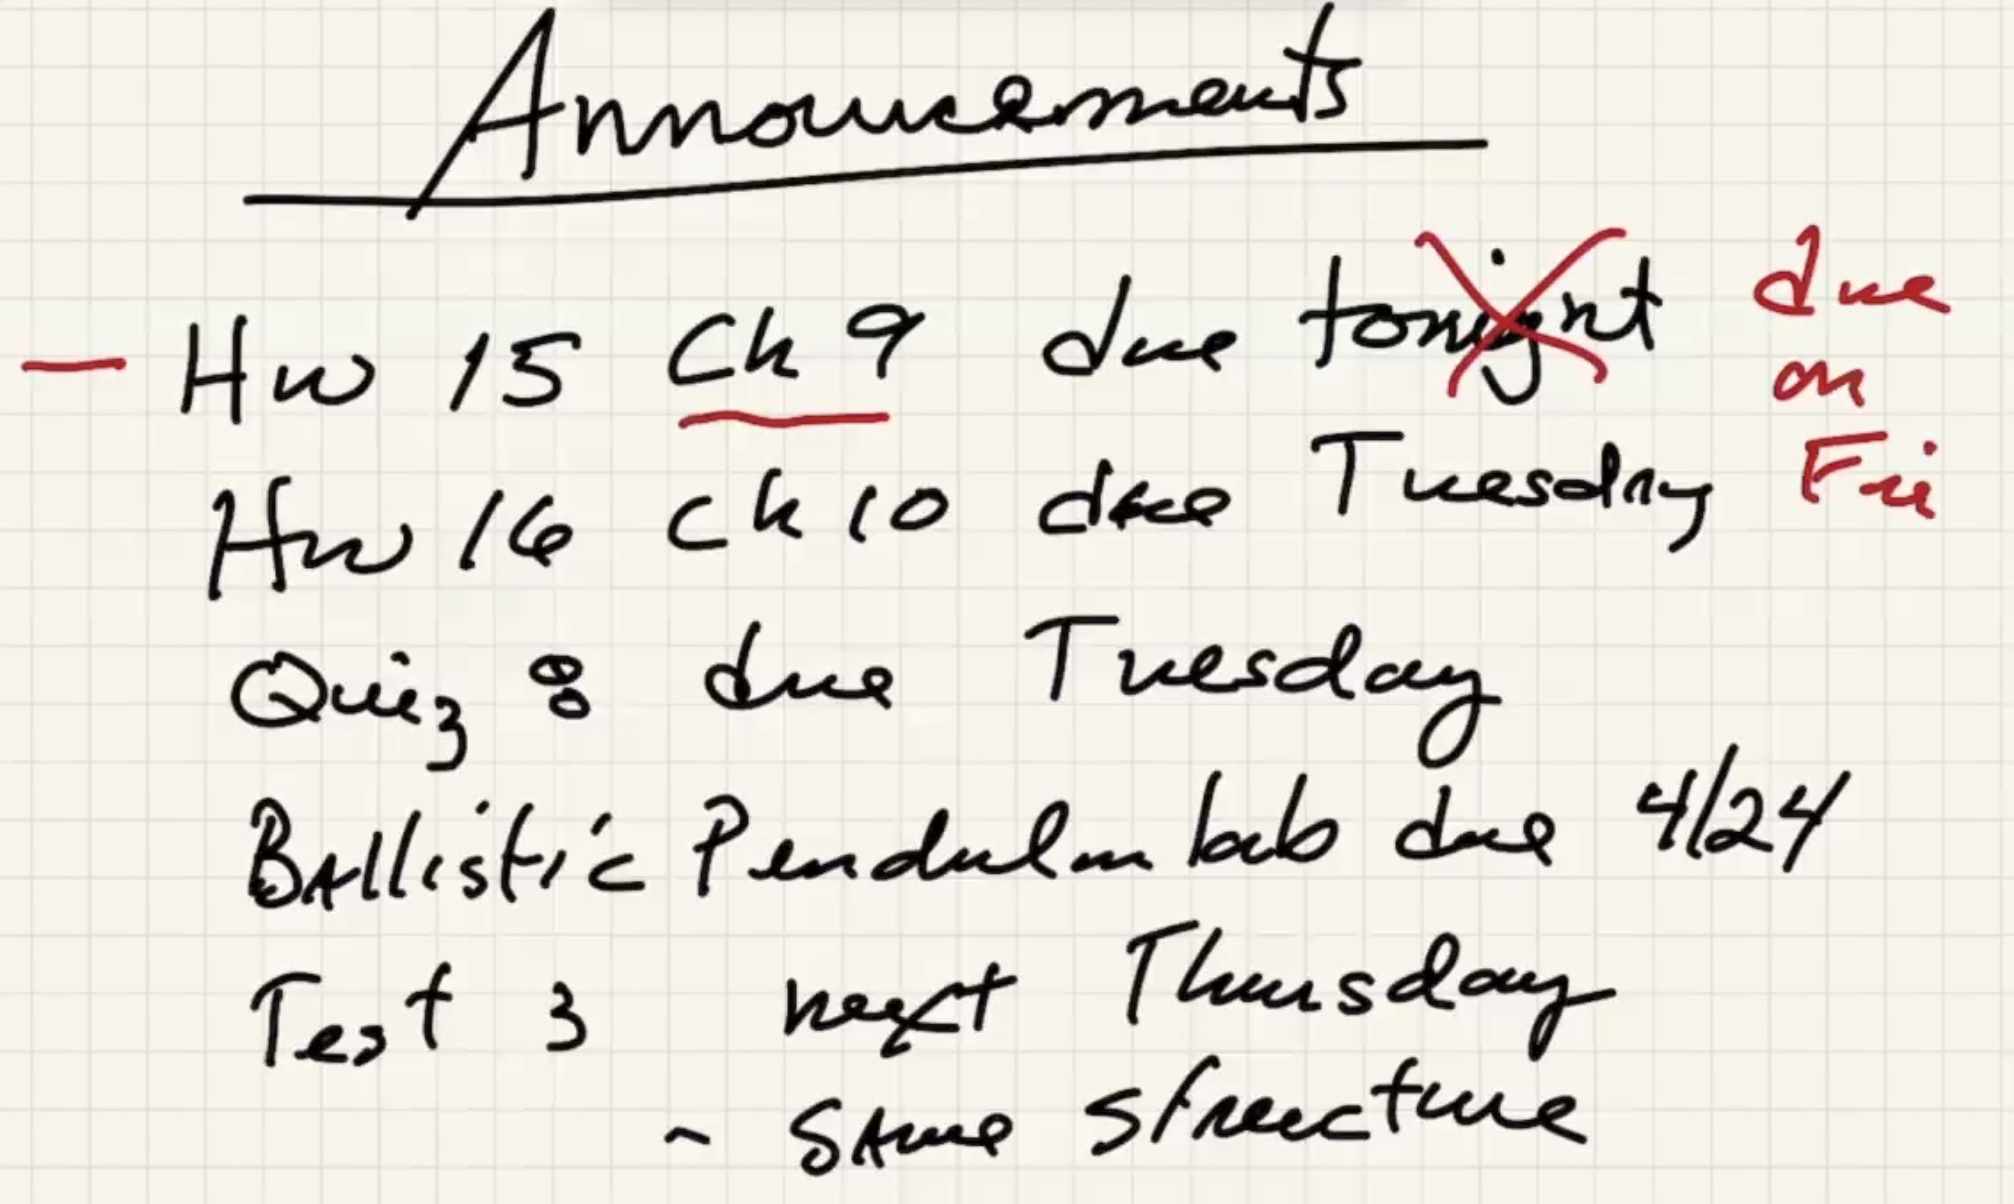 Annoucements
- Hw 15 Ch 9 due tonight due on Fri
Hw 16 Ch 10 due Tuesday
Quiz 8 due Tuesday
Ballistic Pendulm lab due 4/24
Test 3 next Thursday
~ Same structure